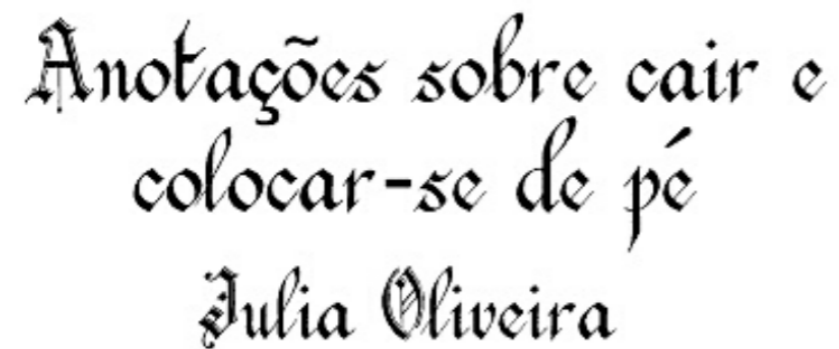 Anotações sobre cair e
colocar-se de pé
Julia Oliveira